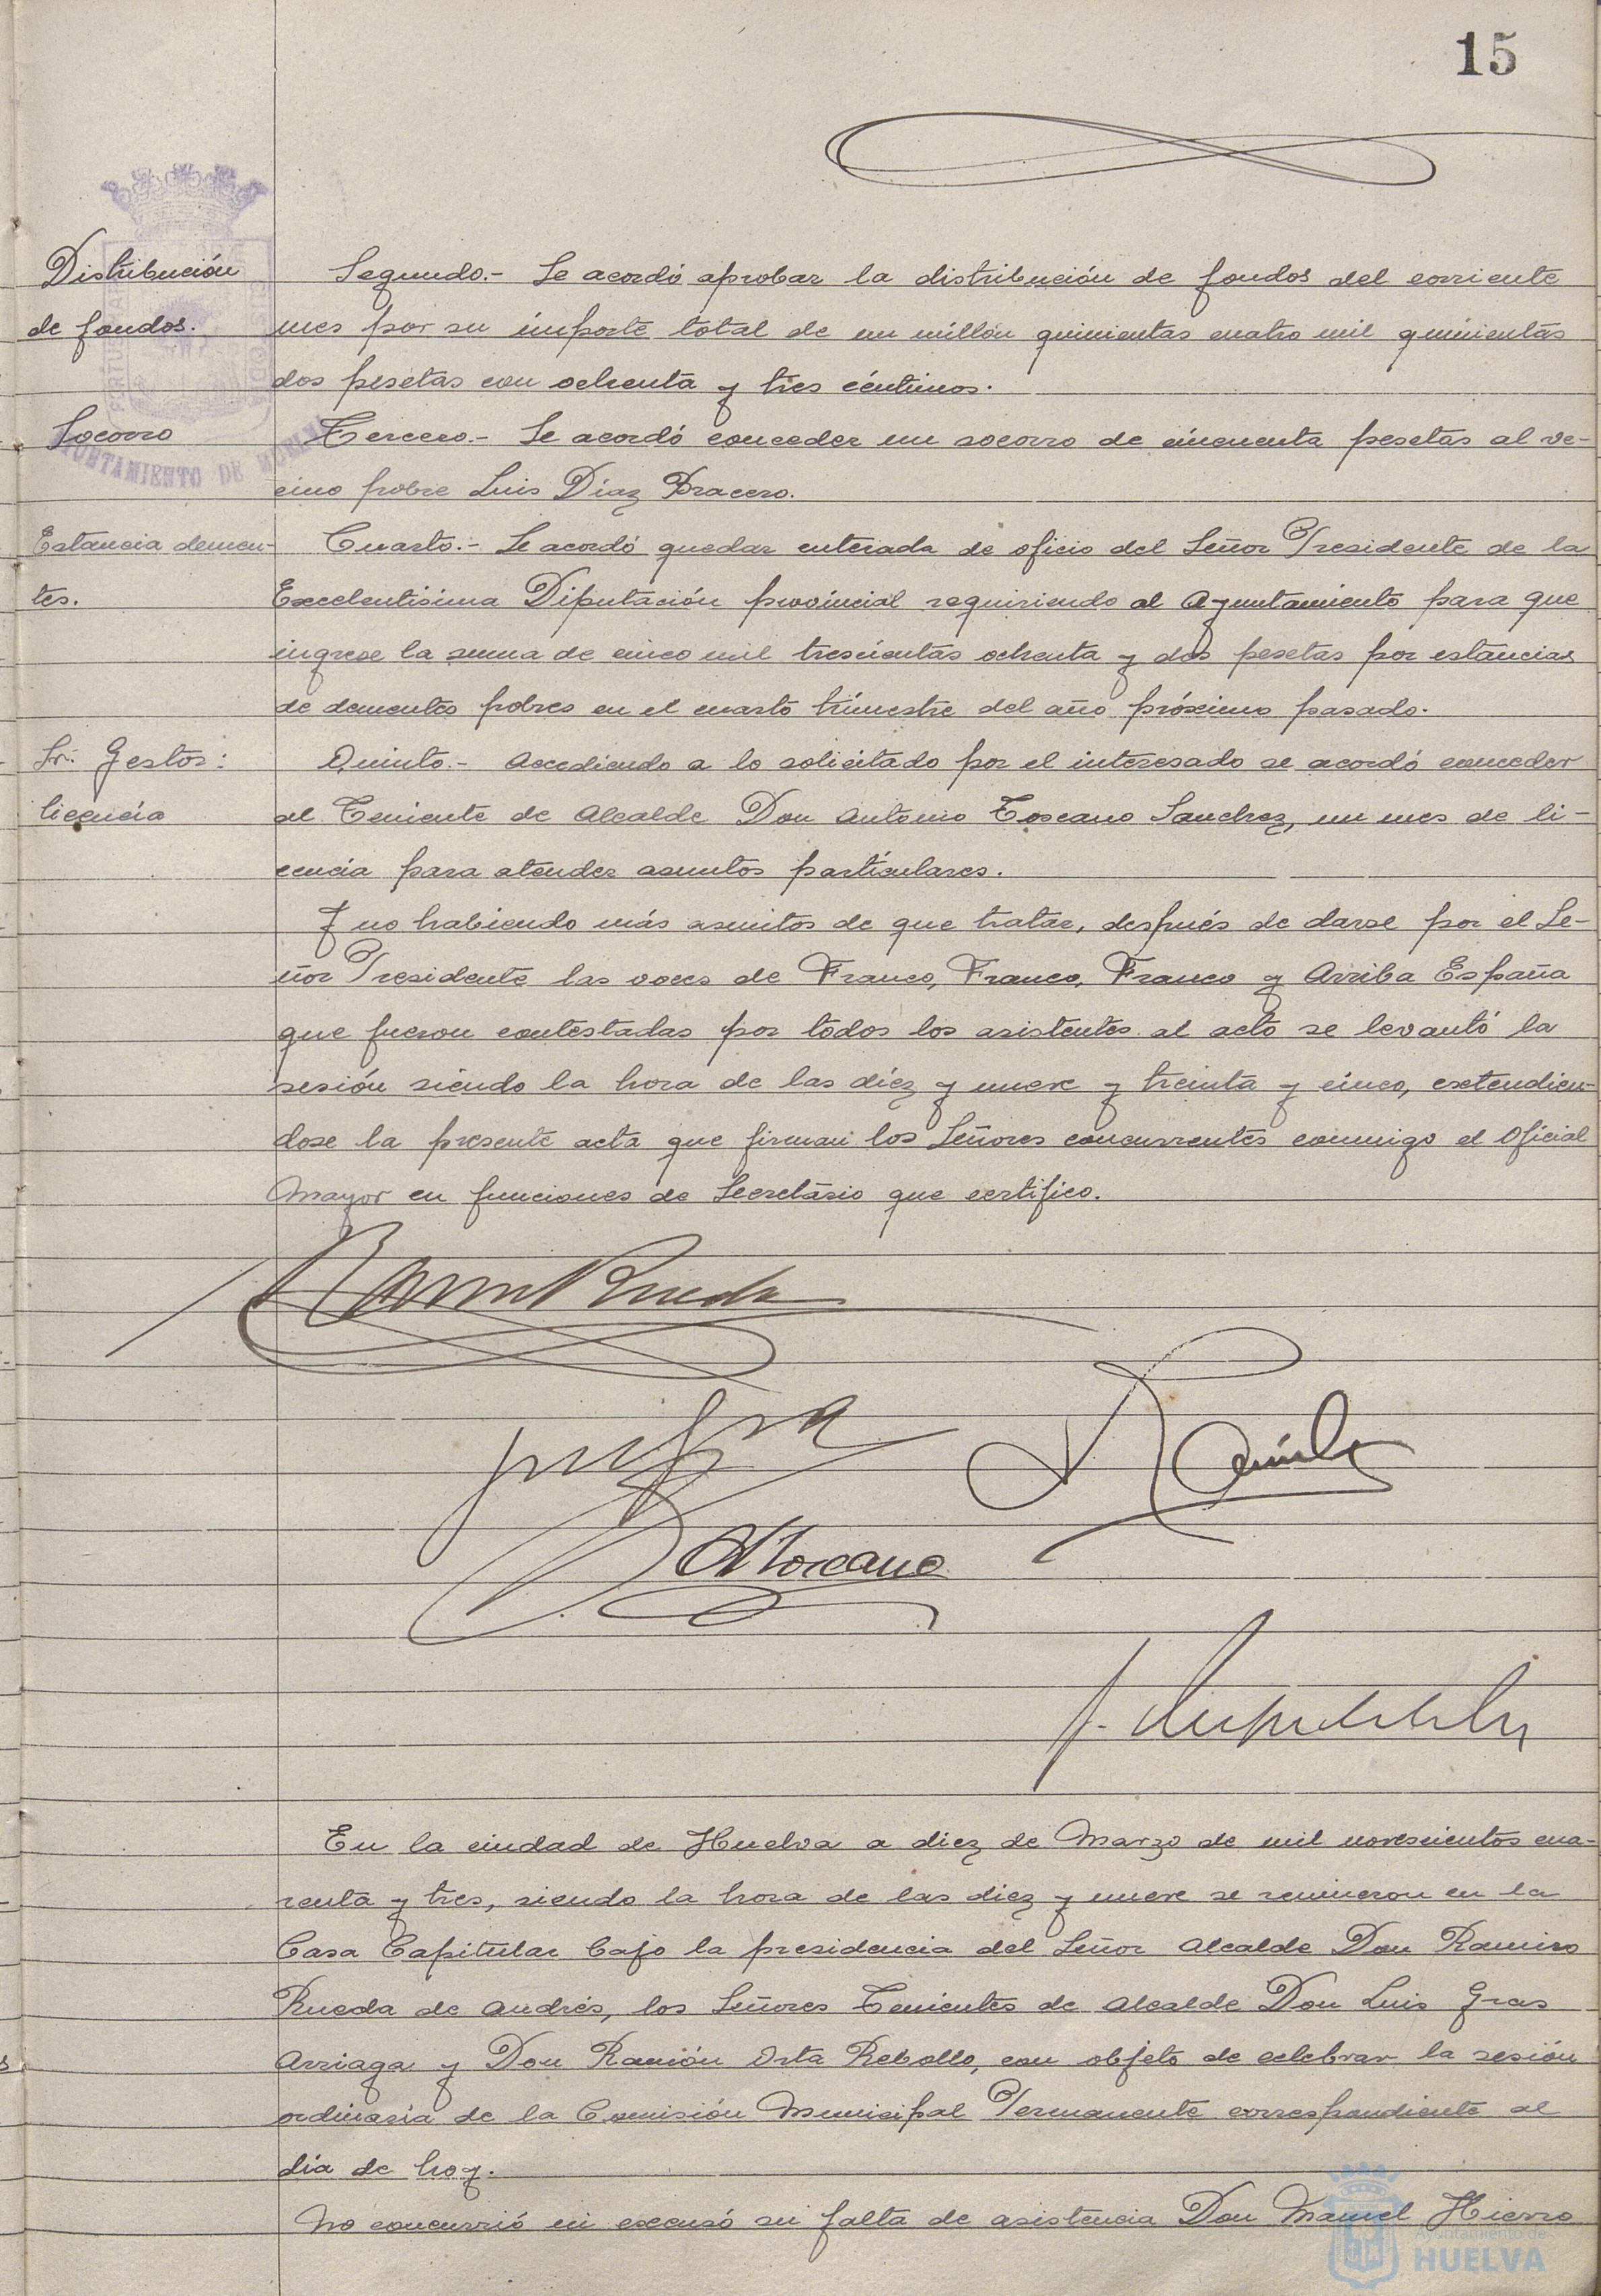 15
Distribución
de fondos.
Segundo.- Se acordó aprobar la distribución de fondos del corriente
mes por su importe total de un millón quinientas cuatro mil quinientas
dos pesetas con ochenta y tres céntimos.
Socorro
Tercero.- Se acordó conceder un socorro de cincuenta pesetas al ve-
cino pobre Luis Díaz Dracero.
AYUNTAMIENTO DE HUELVA
Estancia demen-
tes.
Cuarto.- Se acordó quedar enterada de oficio del Señor Presidente de la
Excelentisima Diputación provincial requiriendo al Ayuntamiento para que
ingrese la suma de cinco mil trescientas ochenta y dos pesetas por estancias
de dementes pobres en el cuarto trimestre del año próximo pasado.
Sr. Gestor:
licencia
Quinto.- Accediendo a lo solicitado por el interesado se acordó conceder
al Teniente de Alcalde Don Antonio Toscano Sanchez, un mes de li-
cencia para atender asuntos particulares.
Y no habiendo más asuntos de que tratar, después de darse por el Se-
ñor Presidente las voces de Franco, Franco, Franco y Arriba España
que fueron contestadas por todos los asistentes al acto se levantó la
sesión siendo la hora de las diez y nueve y treinta y cinco, extendien-
dose la presente acta que firman los Señores concurrentes conmigo el Oficial
Mayor en funciones de Secretario que certifico.
Ramiro Rueda
A Toscano
En la ciudad de Huelva a diez de Marzo de mil novescientos cua-
renta y tres, siendo la hora de las diez y nueve se reunieron en la
Casa Capitular bajo la presidencia del Señor Alcalde Don Ramiro
Rueda de Andrés, los Señores Tenientes de Alcalde Don Luis Gras
Arriaga y Don Ramón Orta Rebollo, con objeto de celebrar la sesión
ordinaria de la Comisión Municipal Permanente correspondiente al
día de hoy.
No concurrió ni excusó su falta de asistencia Don Manuel Hierro
Ayuntamiento de
HUELVA